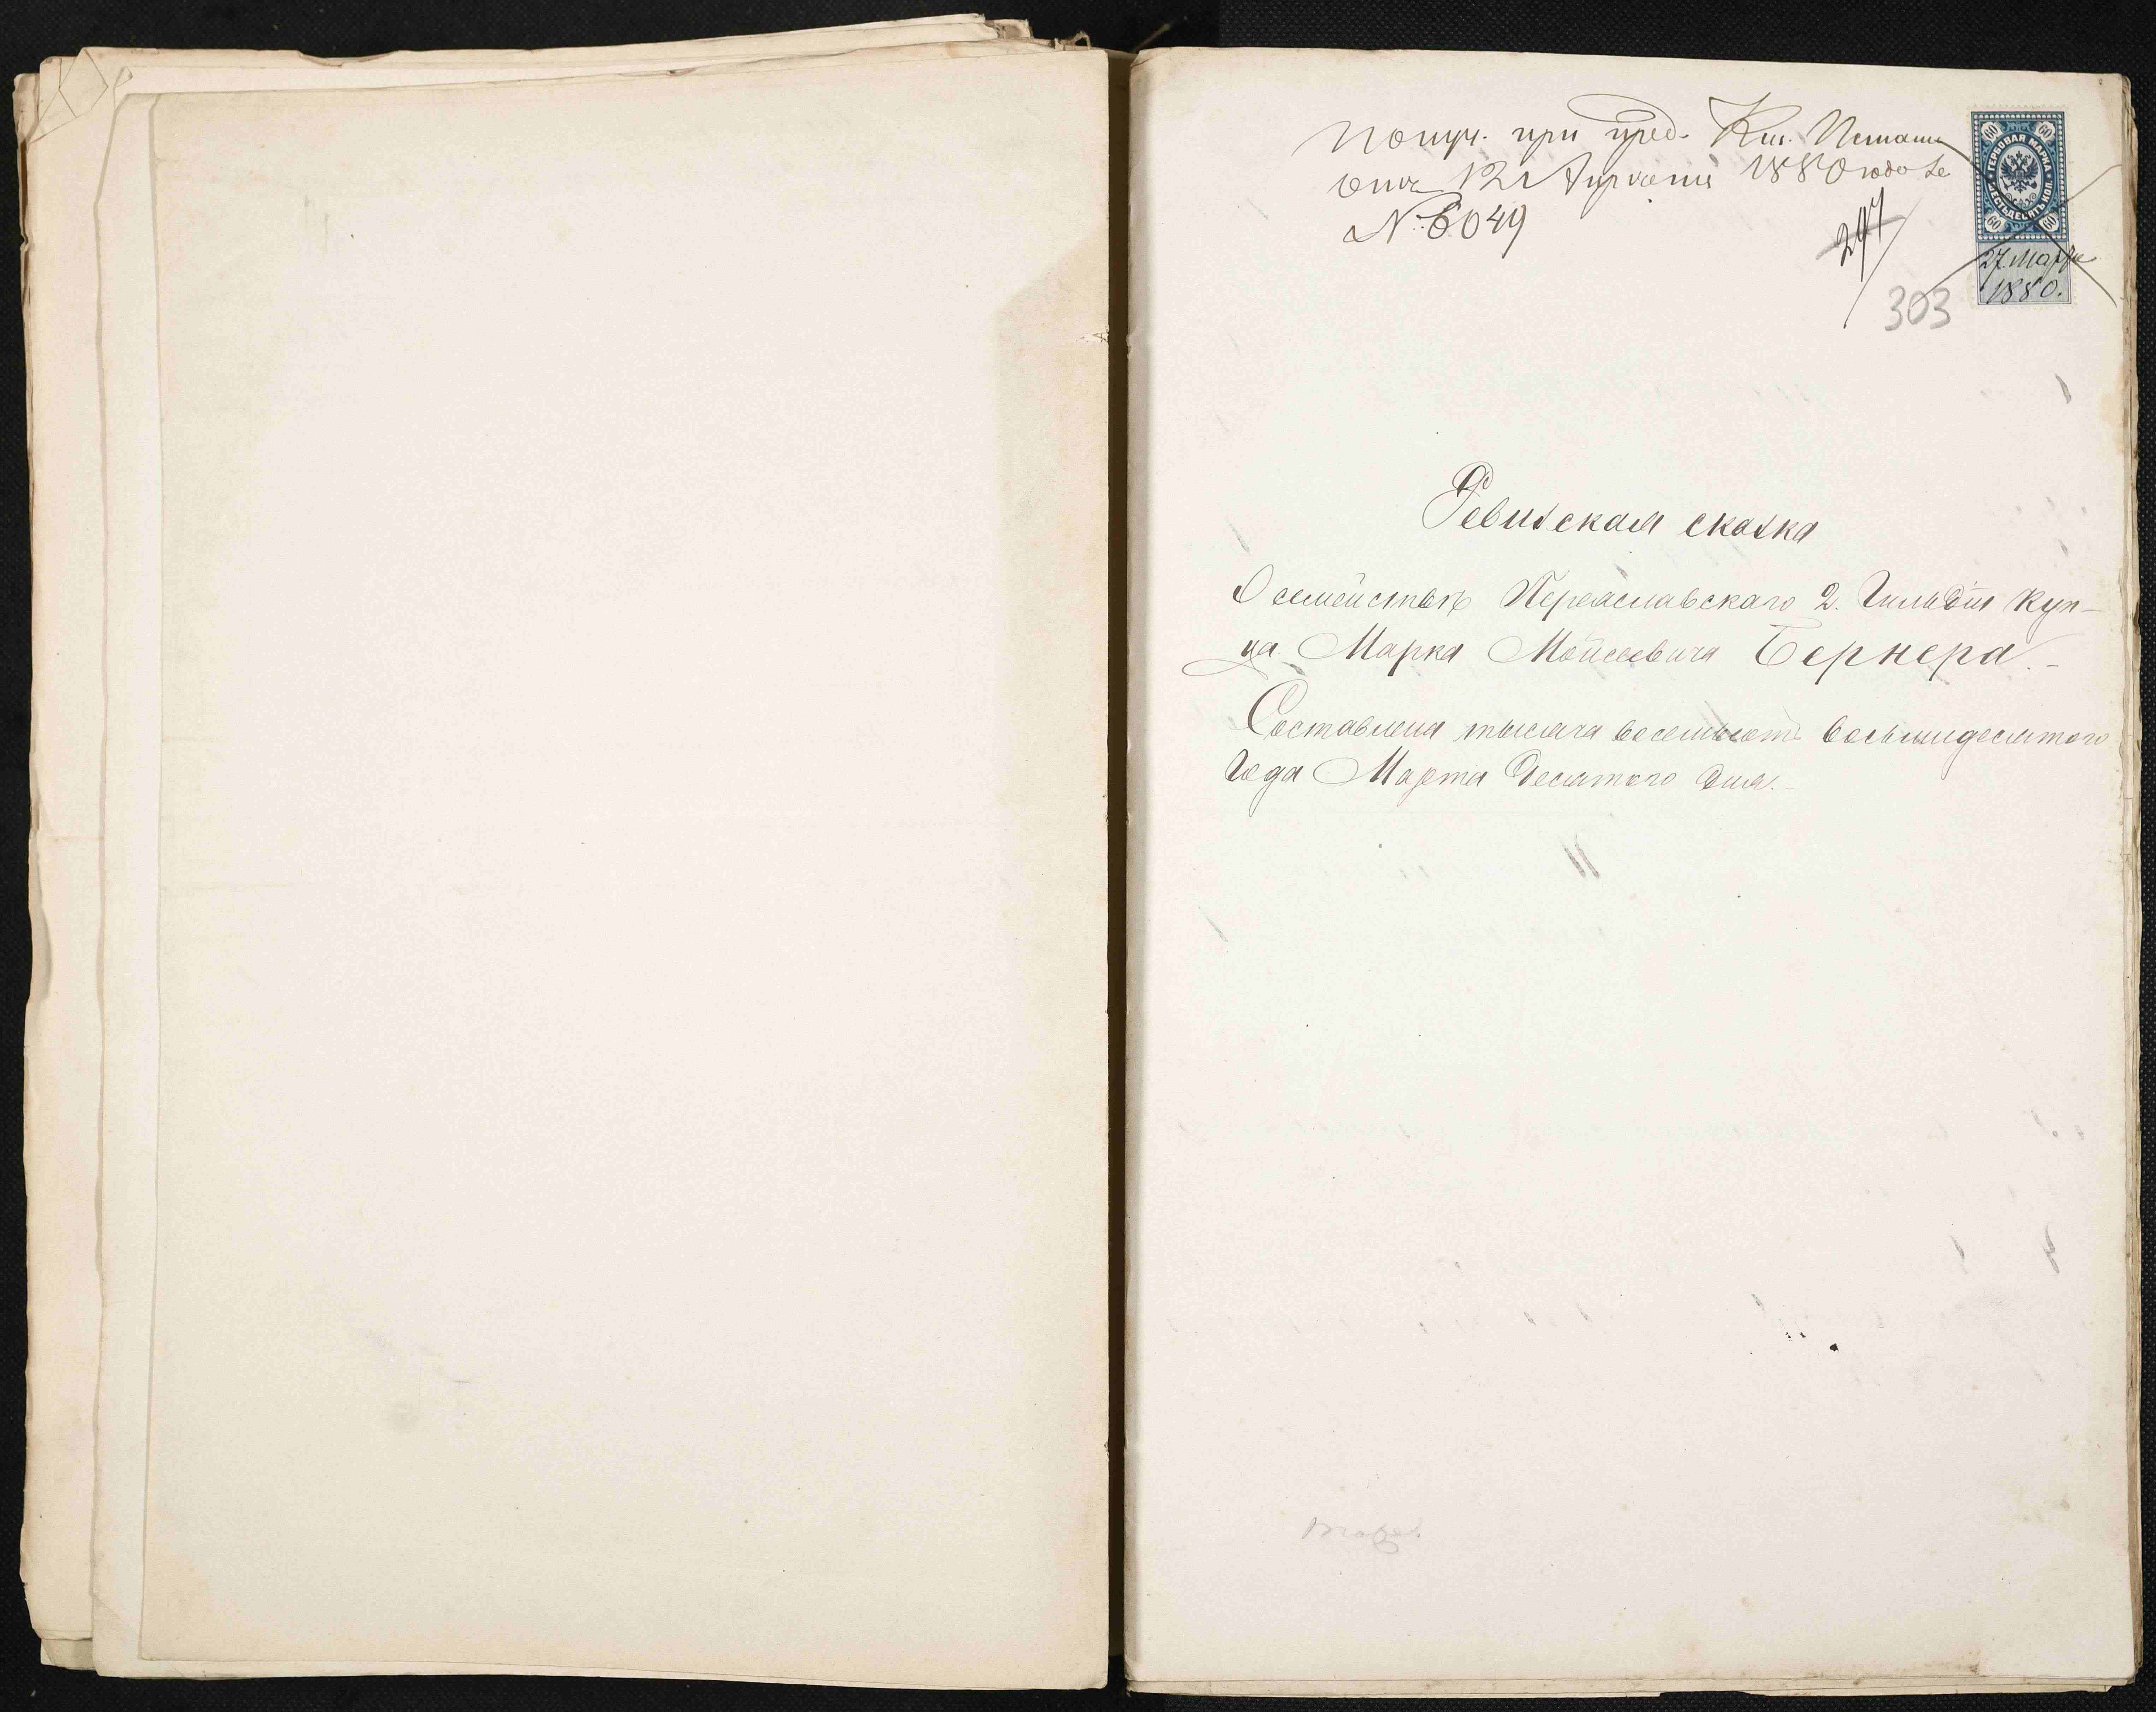 Получ. при пред. Каз. Палаты
отъ 12 Апреля 1880 года за
№ 6049
297
303
60 60
ГЕРБОВАЯ МАРКА
ШЕСТЬДЕСЯТЪ КОП.
60 60
27 Марта
1880.
Ревизская сказка
О семействѣ Переяславскаго 2. Гильдіи Куп-
ца Марка Мойсеевича Бернера.-
Составлена тысяча восемьсотъ восьмидесятого
Года Марта Десятого Дня.-